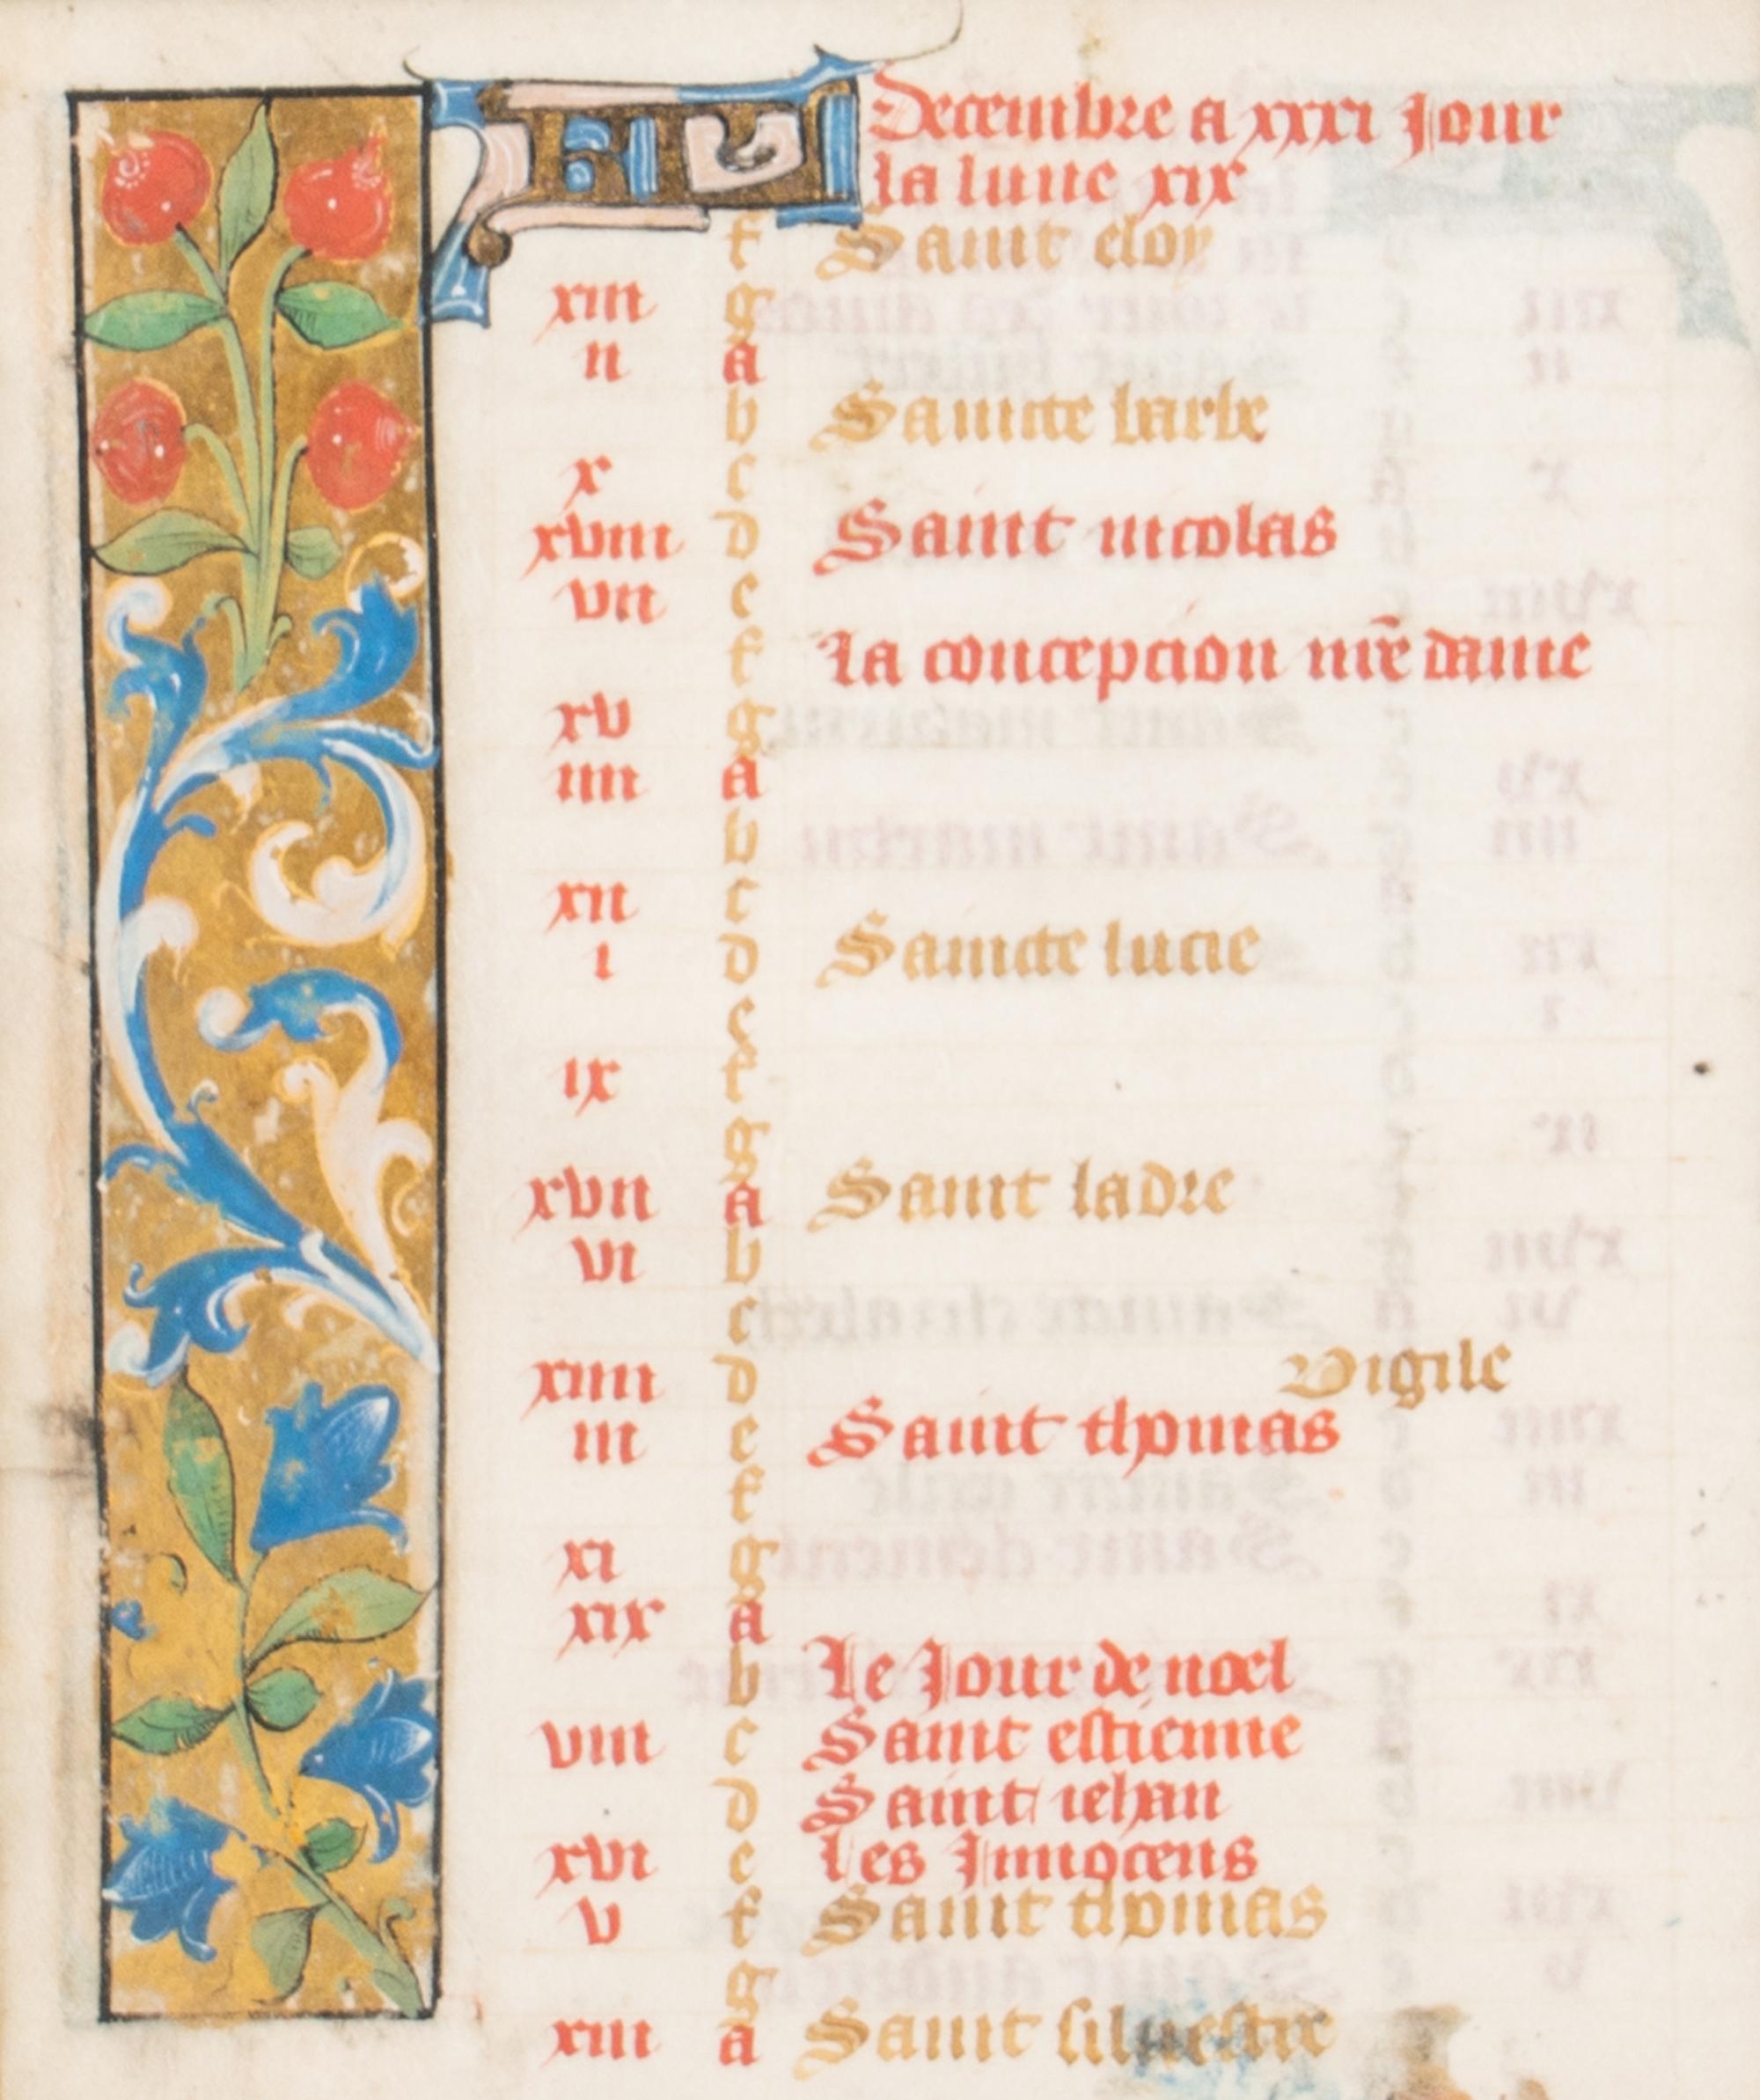 KL Decembre a xxxi Jour
la lune xix
f Saint eloy
xiii g
ii a
b Saincte barbe
x c
xviii d Saint nicolas
vii e
f la concepcion nr̄e dame
xv g
iiii a
b
xii c
i d Saincte lucie
e
ix f
g
xvii a Saint ladre
vi b
c
xiiii d Vigile
iii e Saint thomas
f
xi g
xix a
b Le Jour de noel
viii c Saint estienne
d Saint iehan
xvi e Les Innocens
v f Saint thomas
g
xiii a Saint siluestre